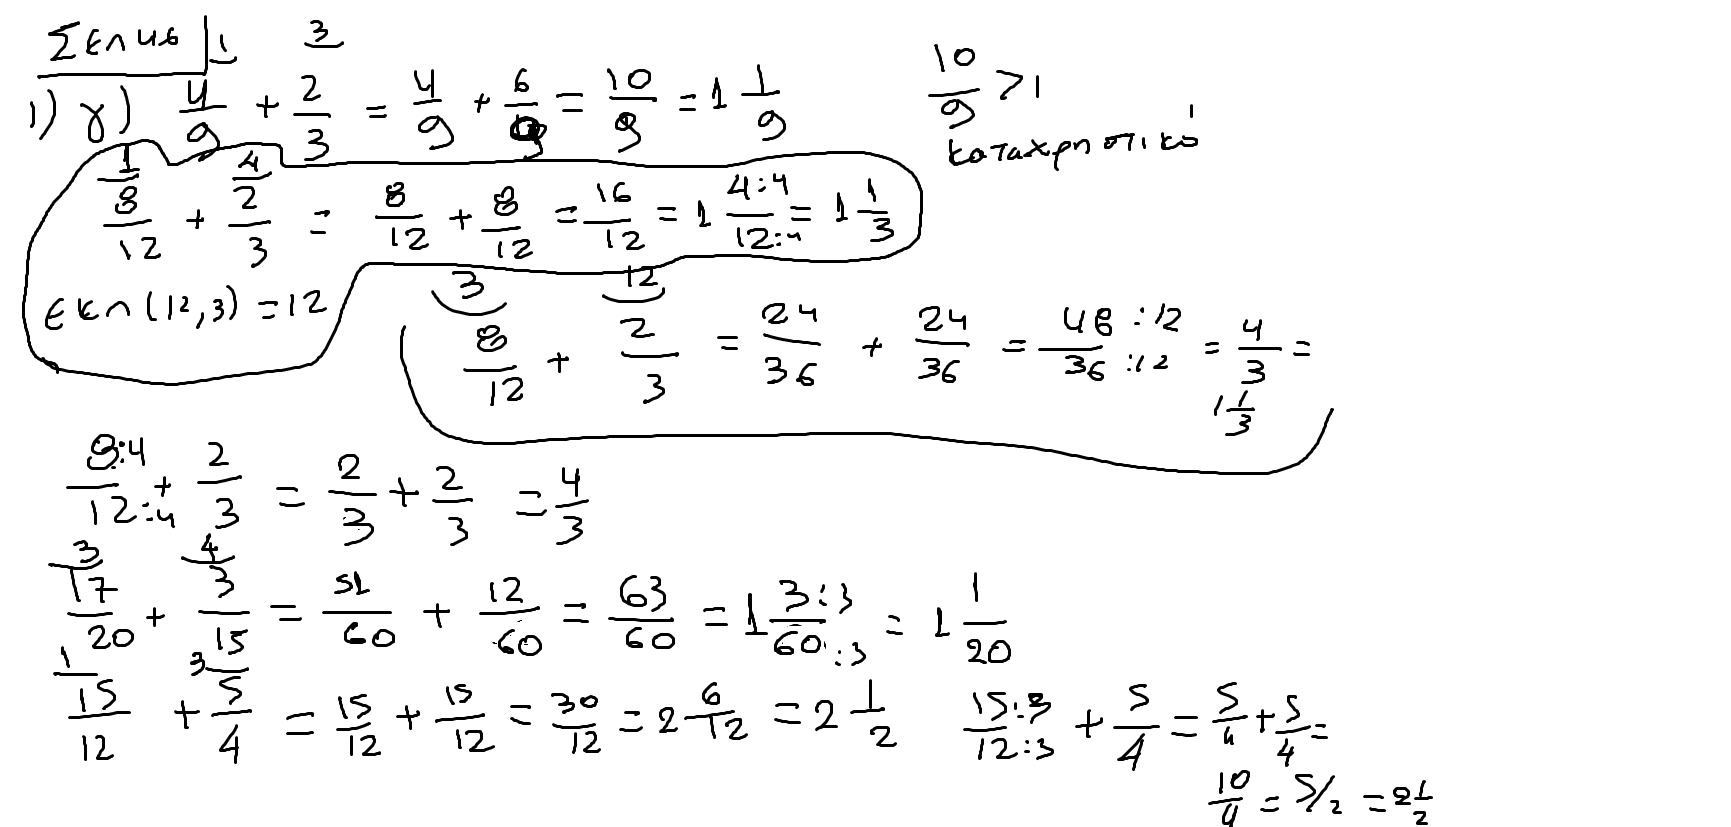 Σελ 46
1) γ) 4/9 + 2/3 = 4/9 + 6/9 = 10/9 = 1 1/9
1 3
10/9 > 1
καταχρηστικό
1 4
8/12 + 2/3 = 8/12 + 8/12 = 16/12 = 1 4:4/12:4 = 1 1/3
εκπ(12,3) = 12
3 12
8/12 + 2/3 = 24/36 + 24/36 = 48:12/36:12 = 4/3 =
1 1/3
8:4/12:4 + 2/3 = 2/3 + 2/3 = 4/3
3 4
17/20 + 3/15 = 51/60 + 12/60 = 63/60 = 1 3:3/60:3 = 1 1/20
1 3
15/12 + 5/4 = 15/12 + 15/12 = 30/12 = 2 6/12 = 2 1/2
15:3/12:3 + 5/4 = 5/4 + 5/4 =
10/4 = 5/2 = 2 1/2